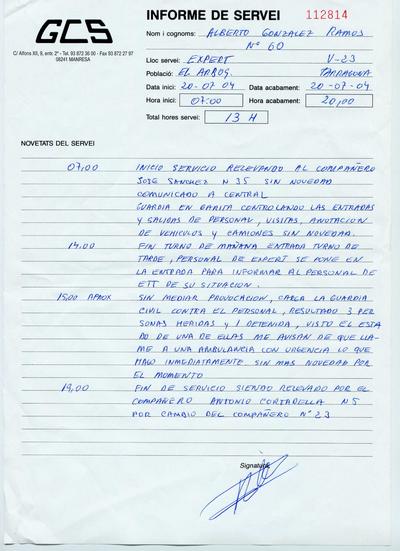 GCS
C/ Alfons XII, 9, entr. 2ª - Tel. 93 872 36 00 - Fax 93 872 27 97
08241 MANRESA
INFORME DE SERVEI
112814
Nom i cognoms: ALBERTO GONZALEZ RAMOS
Nº 60
Lloc servei: EXPERT V-23
Població: EL ARBOÇ. TARRAGONA
Data inici: 20-07-04 Data acabament: 20-07-04
Hora inici: 07:00 Hora acabament: 20,00
Total hores servei: 13 H
NOVETATS DEL SERVEI
07,00 INICIO SERVICIO RELEVANDO AL COMPAÑERO
JOSE SANCHEZ N 35 SIN NOVEDAD
COMUNICADO A CENTRAL
GUARDIA EN GARITA CONTROLANDO LAS ENTRADAS
Y SALIDAS DE PERSONAL, VISITAS, ANOTACION
DE VEHICULOS Y CAMIONES SIN NOVEDAD.
14.00 FIN TURNO DE MAÑANA ENTRADA TURNO DE
TARDE, PERSONAL DE EXPERT SE PONE EN
LA ENTRADA PARA INFORMAR AL PERSONAL DE
ETT DE SU SITUACION.
15,00 APROX SIN MEDIAR PROVOCACION, CARGA LA GUARDIA
CIVIL CONTRA EL PERSONAL, RESULTADO 3 PER
SONAS HERIDAS Y 1 DETENIDA, VISTO EL ESTA
DO DE UNA DE ELLAS ME AVISAN DE QUE LLA-
ME A UNA AMBULANCIA CON URGENCIA LO QUE
HAGO INMEDIATAMENTE. SIN MAS NOVEDAD POR
EL MOMENTO
19,00 FIN DE SERVICIO SIENDO RELEVADO POR EL
COMPAÑERO ANTONIO CORTADELLA N 5
POR CAMBIO DEL COMPAÑERO Nº 23
Signatura: